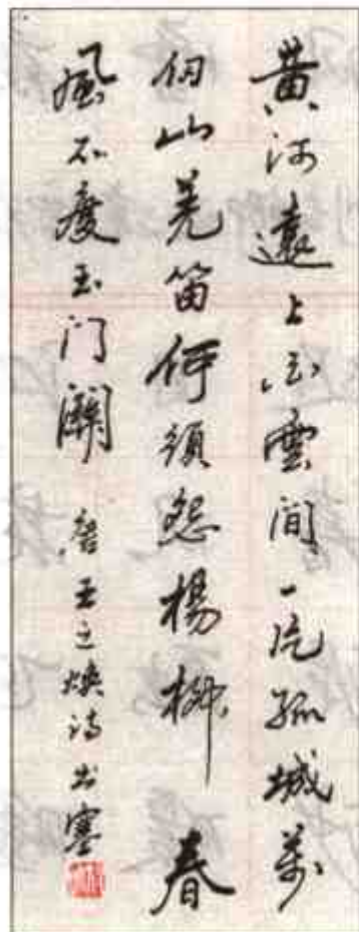 黄河遠上白雲間一片孤城萬
仞山羌笛何須怨楊柳春
風不度玉门關 唐王之煥诗出塞